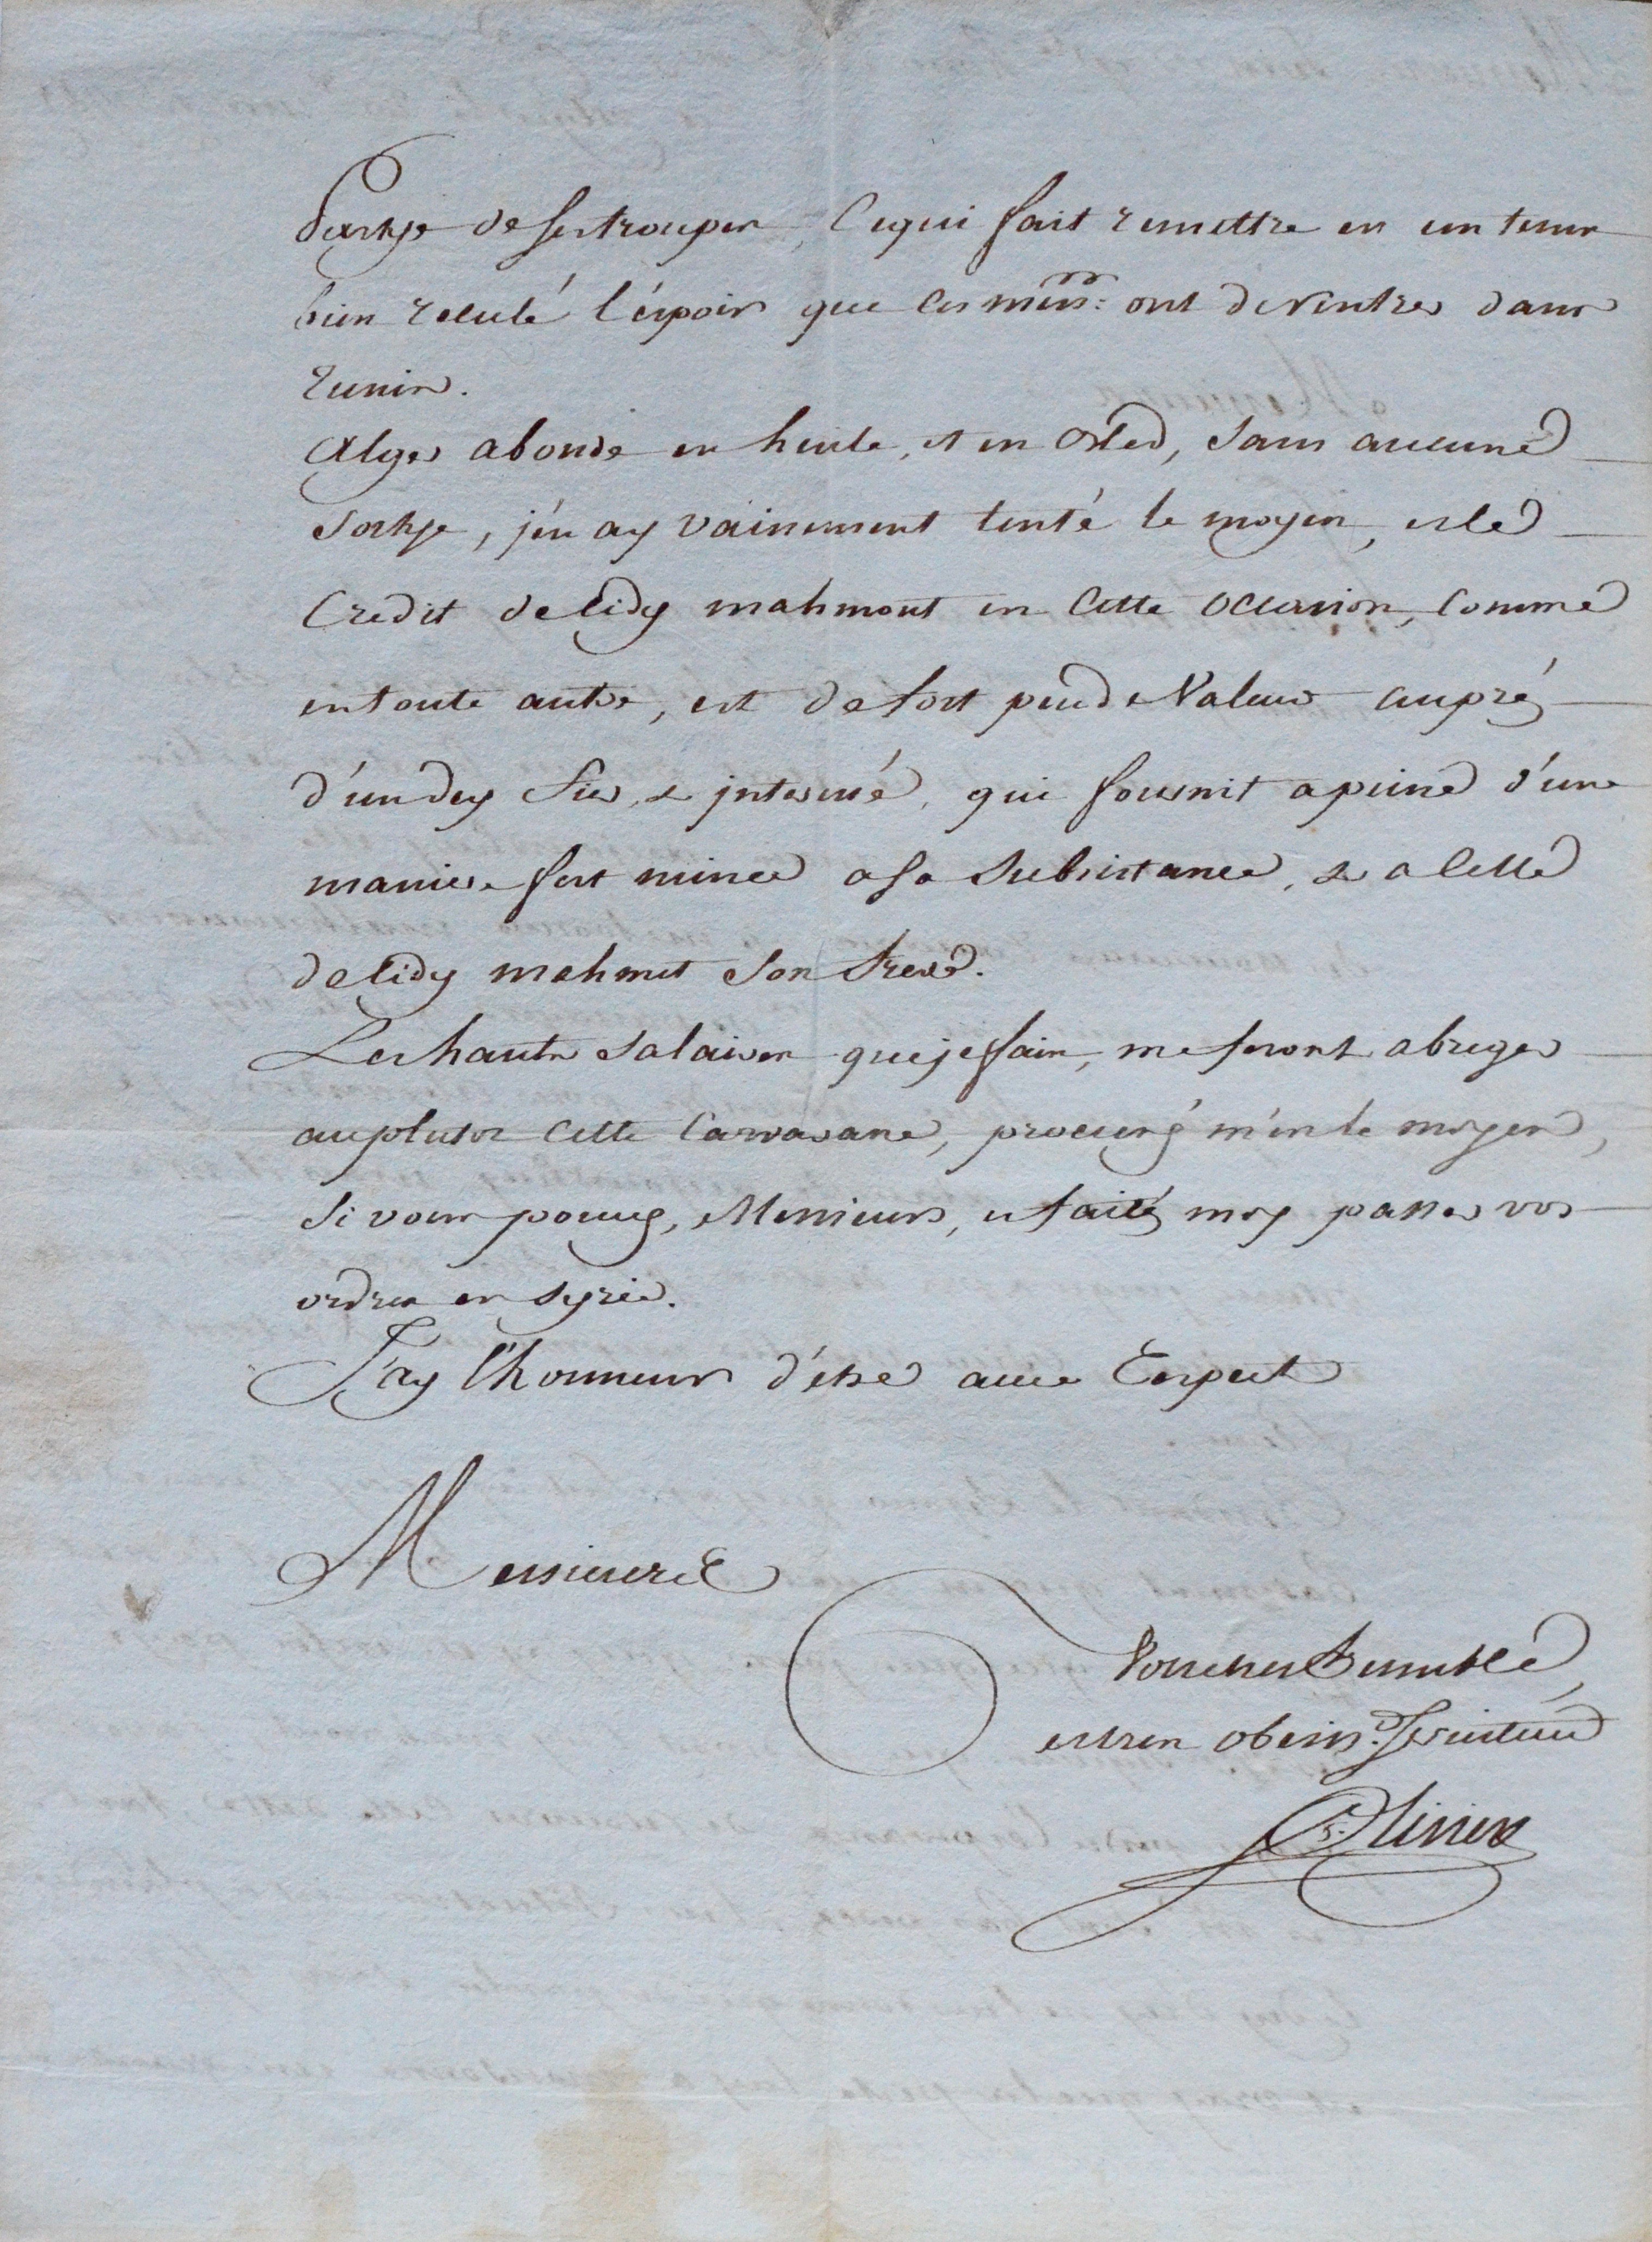 Partye de ses troupes, Ce qui fait remettre en un tems
bien reculé l'éspoir que ces mrs: ont de Rentrer dans
Tunis.
Alger abonde en huile, et en bled, sans aucune
sortye, j'en ay vainement tenté le moyen, et le
Credit de Cidy mahmout en Cette occasion, Comme
en toute autre, est de fort peu de Valeur aupré
d'un dey fier, & interessé, qui fournit a peine d'une
maniere fort mince a sa subsistance, & a Celle
de Cidy mehmet son frere.
Les hauts salaires que je fais, me feront abreger
au plutot Cette Carravane, procuré m'en le moyen,
si vous pouvez, Messieurs, et faités moy passer vos
ordres en Syrie.
J'ay l'honneur d'étre avec Respect
Messieurs
Votre tres humble
et tres obeiss. Serviteur
Olivier